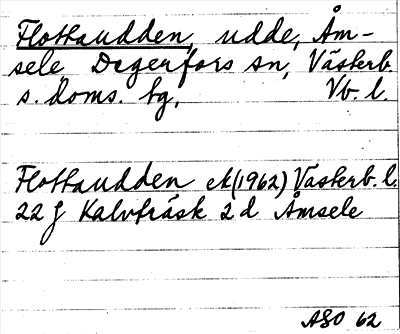 Flottaudden, udde, Åm-
sele, Degerfors sn, Västerb.
s. doms. bg, Vb. l.
Flottaudden ek (1962) Västerb. l.
22 J Kalvträsk 2 d Åmsele
ASO 62